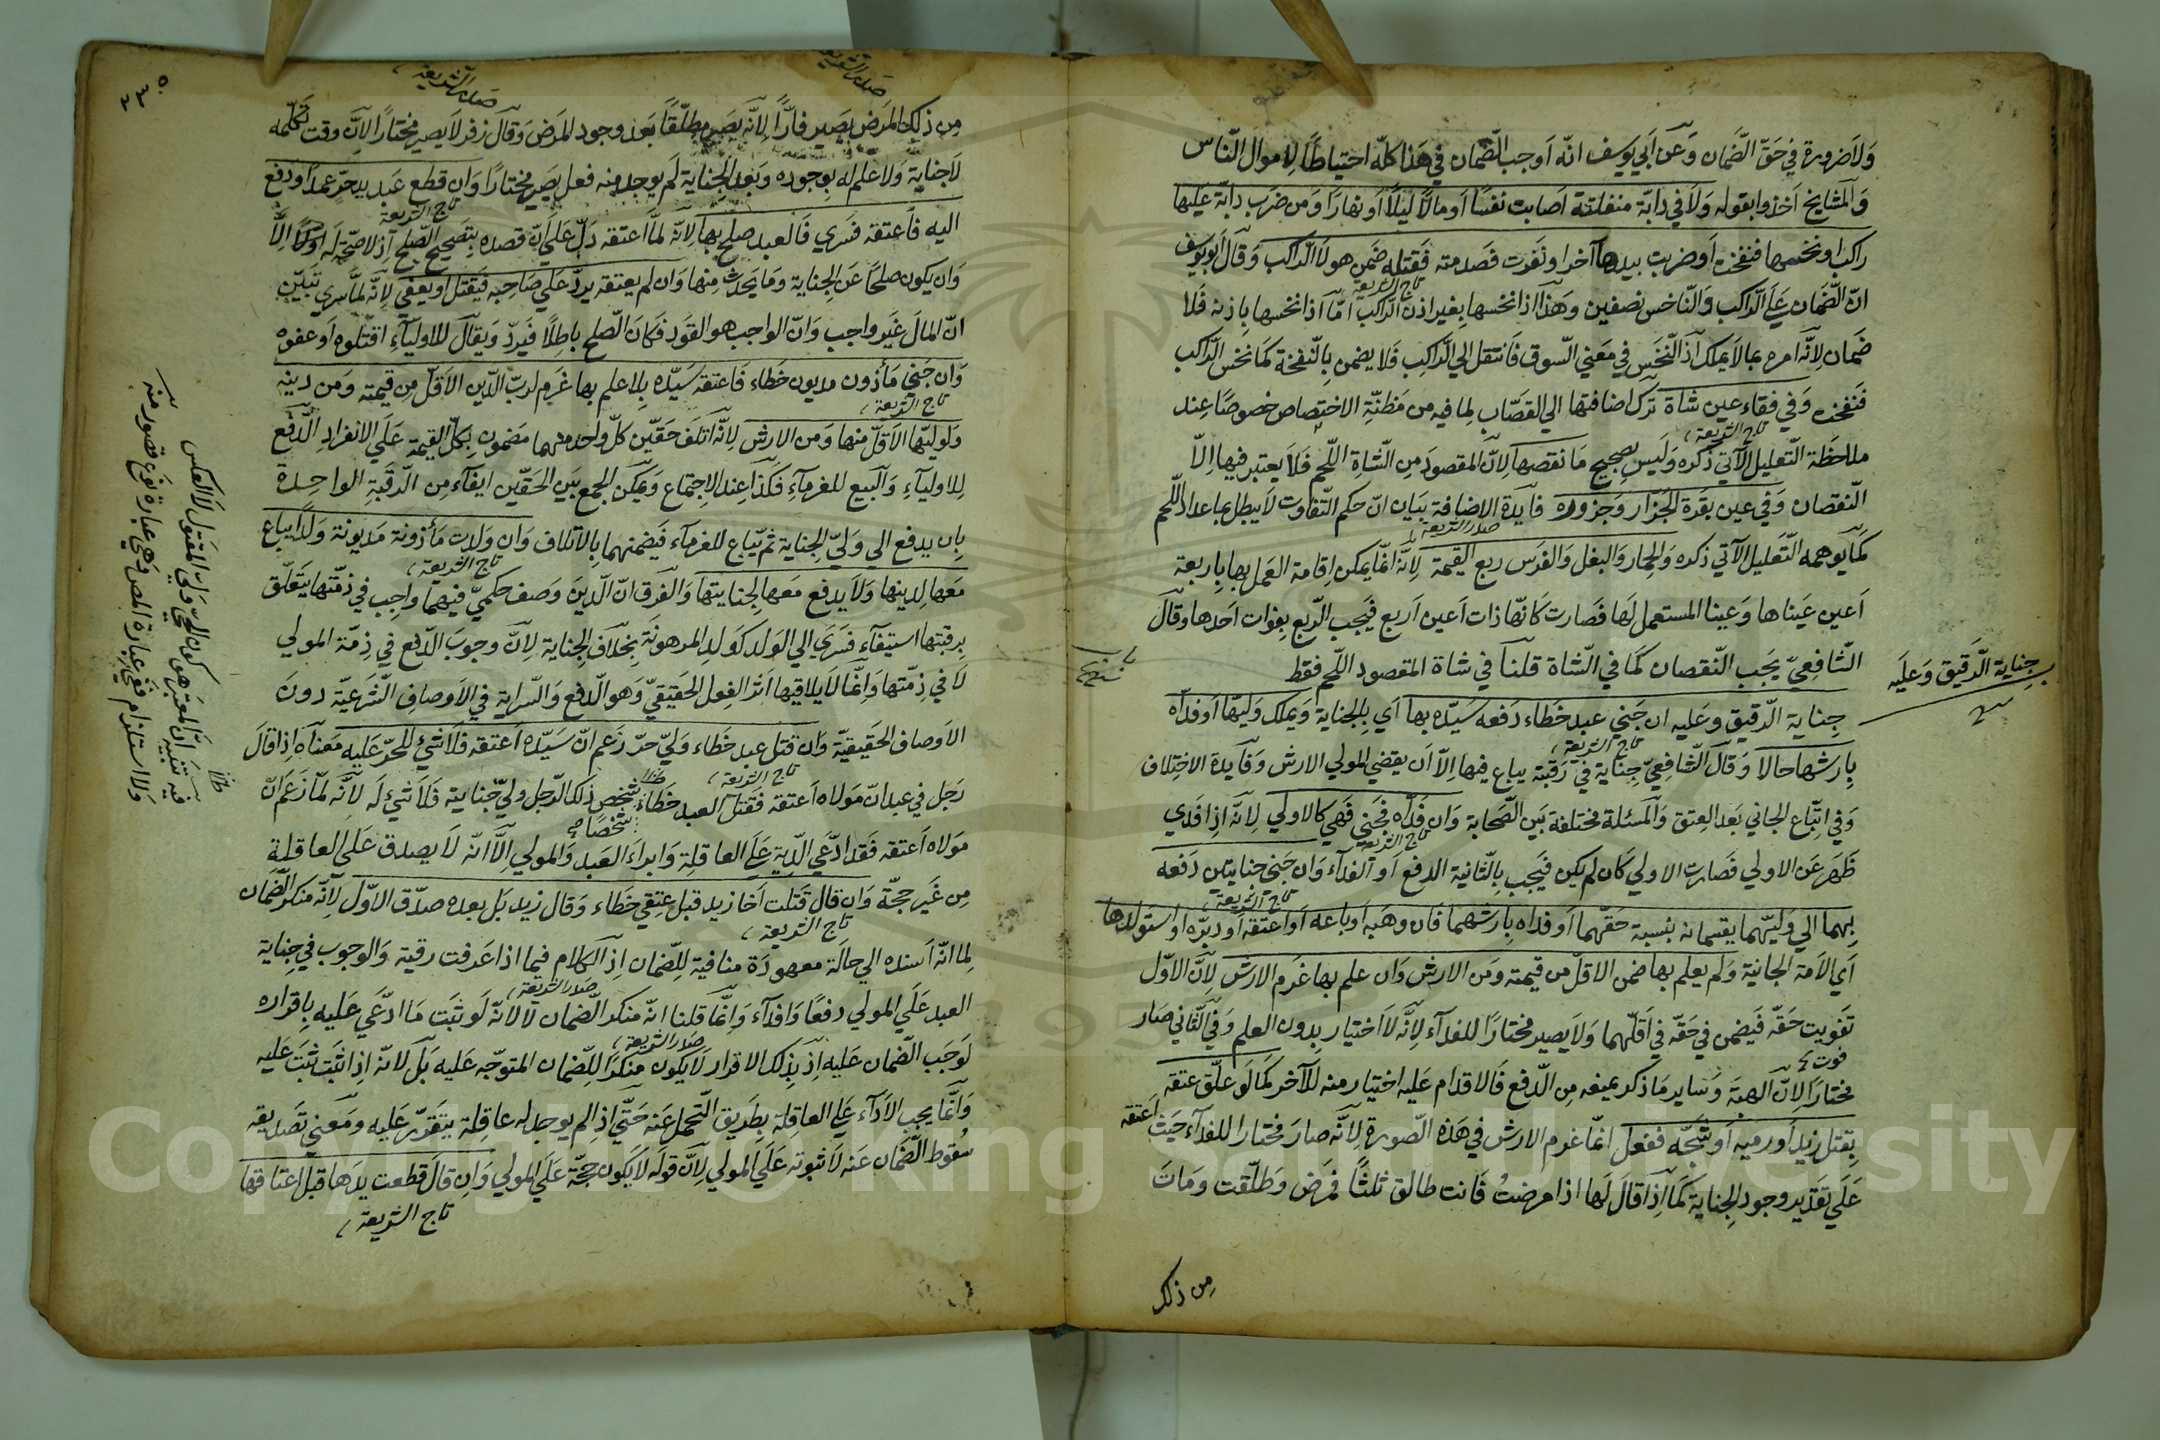 ولا ضرورة في حقّ الضمان وعن أبي يوسف انّه اوجب الضمان في هذا كلّه احتياطًا لاموال النّاس
والمشايخ اخذوا بقوله ولا في دابّة منفلتة اصابت نفسًا او مالًا ليلًا او نهارًا ومن ضرب دابّة عليها
راكب او نخسها فنفحت او ضربت بيدها آخر او نفرت فصدمته فقتله ضمن هو لا الراكب وقال ابو يوسف
انّ الضمان على الراكب والنّاخس نصفين وهذا اذا نخسها بغير اذن الراكب امّا اذا نخسها باذنه فلا
ضمان لانّه امره بما لا يملك اذ النّخس في معني السّوق فانتقل الي الراكب فلا يضمن بالنّفحة كما نخس الراكب
فنفحت وفي فقاء عين شاة ترك اضافتها الي القصّاب لما فيه من مظنّة الاختصاص خصوصًا عند
ملاحظة التّعليل الآتي ذكره وليس بصحيح ما نقصها لانّ المقصود من الشّاة اللّحم فلا يعتبر فيها الّا
النّقصان وفي عين بقرة الجزّار وجزوره فايدة الاضافة بيان انّ حكم التّفاوت لا يبطل باعداد اللّحم
كما يوهمه التّعليل الآتي ذكره والحمار والبغل والفرس ربع القيمة لانّه انّما يمكن اقامة العمل بها باربعة
اعين عيناها وعينا المستعمل لها فصارت كانّها ذات اعين اربع فيجب الرّبع بفوات احدها وقال
الشّافعيّ يجب النّقصان كما في الشّاة قلنا في شاة المقصود اللّحم فقط
جناية الرّقيق وعليه
جناية الرّقيق وعليه ان جني عبد خطاء دفعه سيّده بها اي بالجناية ويملك وليّها او فداه
بارشها حالا وقال الشّافعيّ جناية في رقبة يباع فيها الّا ان يقضي المولي الارش وفايدة الاختلاف
وفي اتّباع الجاني بعد العتق والمسئلة مختلفة بين الصّحابة وان فداه فجني فهي كالاولي لانّه اذا فدي
ظهر عن الاولي فصارت الاولي كان لم يكن فيجب بالثّانية الدفع او الفداء وان جني جنايتين دفعه
بهما الي وليّهما يقتسمانه بنسبة حقّهما او فداه بارشهما فان وهبه او باعه او اعتقه او دبّره او استولدها
اي الامة الجانية ولم يعلم بها ضمن الاقلّ من قيمته ومن الارش وان علم بها غرم الارش لانّ الاوّل
تفويت حقّه فيضمن في حقّه في اقلّهما ولا يصير مختارًا للفداء لانّه لا اختيار بدون العلم وفي الثّاني صار
مختارًا لانّ الهبة وساير ما ذكر يمنعه من الدّفع فالاقدام عليه اختيار منه للآخر كما لو علّق عتقه
بقتل زيد او رميه او شجّه ففعل انّما غرم الارش في هذه الصّورة لانّه صار مختارا للفداء حيث اعتقه
علي تقدير وجود الجناية كما اذا قال لها اذا مرضت فانت طالق ثلثًا فمرض وطلّقت ومات
من ذلك
من ذلك المرض يصير فارًّا لانّه يصير مطلّقًا بعد وجود المرض وقال زفر لا يصير مختارًا لانّ وقت تكلّمه
لا جناية ولا علم له بوجوده وبعد الجناية لم يوجد منه فعل يصير مختارًا وان قطع عبد يد حرّ عمدا ودفع
اليه فاعتقه فسري فالعبد صلح بها لانّه لمّا اعتقه دلّ على انّ قصده بتصحيح الصّلح اذ لا صحّة له اوّلًا الّا
وان يكون صلحًا عن الجناية وما يحدث منها وان لم يعتقه يردّ علي صاحبه فيقتل او يعفي لانّه لمّا سري تبيّن
انّ المال غير واجب وانّ الواجب هو القود فكان الصّلح باطلًا فيردّ ويقال للاولياء اقتلوه او عفوه
وان جني مأذون مديون خطاء فاعتقه سيّده بلا علم بها غرم لربّ الدّين الاقلّ من قيمته ومن دينه
ولوليّها الاقلّ منها ومن الارش لانّه اتلف حقّين كلّ واحد منهما مضمون بكلّ القيمة علي الانفراد الدّفع
للاولياء والبيع للغرماء فكذا عند الاجتماع ويمكن الجمع بين الحقّين ايفاء من الرّقبة الواحدة
بان يدفع الي وليّ الجناية ثم يباع للغرماء فيضمنهما بالاتلاف وان ولدت مأذونة مديونة ولدًا يباع
معها لدينها ولا يدفع معها لجنايتها والفرق انّ الدّين وصف حكميّ فيهما واجب في ذمّتها يتعلّق
برقبتها استيفاء فسري الي الولد كولد المرهونة بخلاف الجناية لانّ وجوب الدّفع في ذمّة المولي
لا في ذمّتها وانّما لا يلاقيها اثر الفعل الحقيقيّ وهو الدفع والسّراية في الاوصاف الشّرعيّة دون
الاوصاف الحقيقيّة وان قتل عبد خطاء وليّ حرّ زعم انّ سيّده اعتقه فلا شئ للحرّ عليه معناه اذا قال
رجل في عبد انّ مولاه اعتقه فقتل العبد خطاءً شخص ذلك الرّجل وليّ جنايته فلا شئ له لانّه لمّا زعم انّ
مولاه اعتقه فقد ادّعي الدّية على العاقلة وابراء العبد والمولي الّا انّه لا يصدق علي العاقلة
من غير حجّة وان قال قتلت اخا زيد قبل عتقي خطاء وقال زيد بل بعده صدّق الاوّل لانّه منكر الضّمان
لما انّه اسنده الي حالة معهودة منافية للضّمان اذ الكلام فيما اذا عرفت رقيته والوجوب في جناية
العبد علي المولي دفعًا وفداء وانّما قلنا انّه منكر الضّمان لا لانّه لو ثبت ما ادّعي عليه باقراره
لوجب الضّمان عليه اذ بذلك الاقرار لا يكون منكرًا للضّمان المتوجّه عليه بل لانّه اذا ثبت ثبت عليه
وانّما يجب الاداء على العاقلة بطريق التّحمل عنه حتّي اذا لم يوجد له عاقلة يتقرّر عليه ومعني تصديقه
سقوط الضّمان عنه لا ثبوته علي المولي لانّ قوله لا يكون حجّة علي المولي وان قال قطعت يدها قبل اعتاقها
تاج الشريعة
صدر الشريعة
شخصًا
Copyright © King Saud University